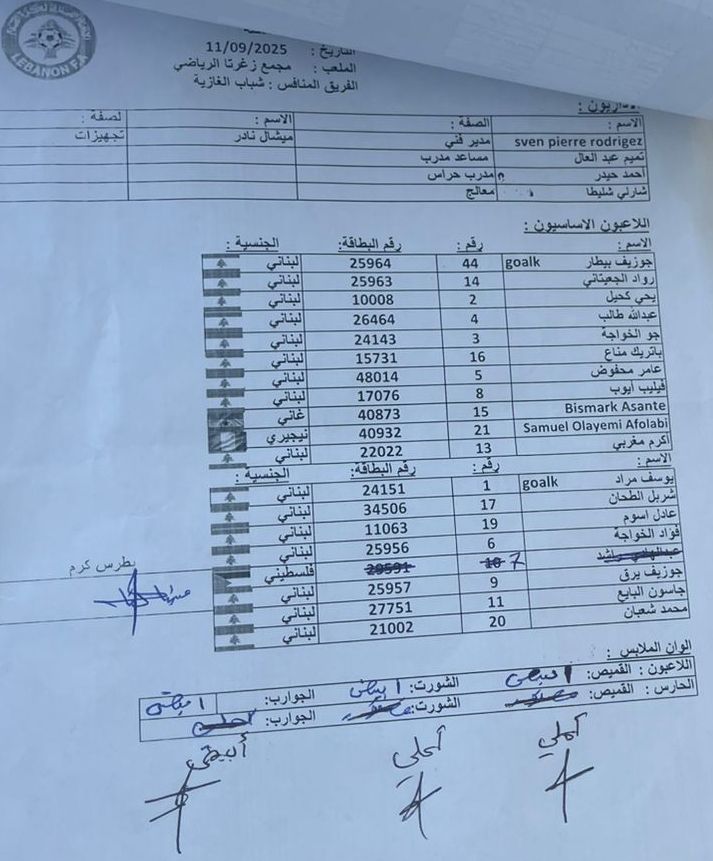 LEBANON F.A
التاريخ : 11/09/2025
الملعب : مجمع زغرتا الرياضي
الفريق المنافس : شباب الغازية
الاداريون :
الاسم : الصفة : الاسم : لصفة :
sven pierre rodrigez مدير فني ميشال نادر تجهيزات
تميم عبد العال مساعد مدرب
احمد حيدر مدرب حراس
شارلي شليطا معالج
اللاعبون الاساسيون :
الاسم : رقم : رقم البطاقة: الجنسية :
جوزيف بيطار goalk 44 25964 لبناني
رواد الجعيتاني 14 25963 لبناني
يحي كحيل 2 10008 لبناني
عبدالله طالب 4 26464 لبناني
جو الخواجة 3 24143 لبناني
باتريك مناع 16 15731 لبناني
عامر محفوض 5 48014 لبناني
فيليب ايوب 8 17076 لبناني
Bismark Asante 15 40873 غاني
Samuel Olayemi Afolabi 21 40932 نيجيري
اكرم مغربي 13 22022 لبناني
الاسم : رقم : رقم البطاقة: الجنسية :
يوسف مراد goalk 1 24151 لبناني
شربل الطحان 17 34506 لبناني
عادل اسوم 19 11063 لبناني
فؤاد الخواجة 6 25956 لبناني
راشد 10 7 29591 فلسطيني
جوزيف يرق 9 25957 لبناني
جاسون البايع 11 27751 لبناني
محمد شعبان 20 21002 لبناني
بطرس كرم
الوان الملابس :
اللاعبون : القميص: ابيض الشورت: ابيض الجوارب: ابيض
الحارس : القميص: الشورت: الجوارب:
أكحلي أكحلي ألبيض